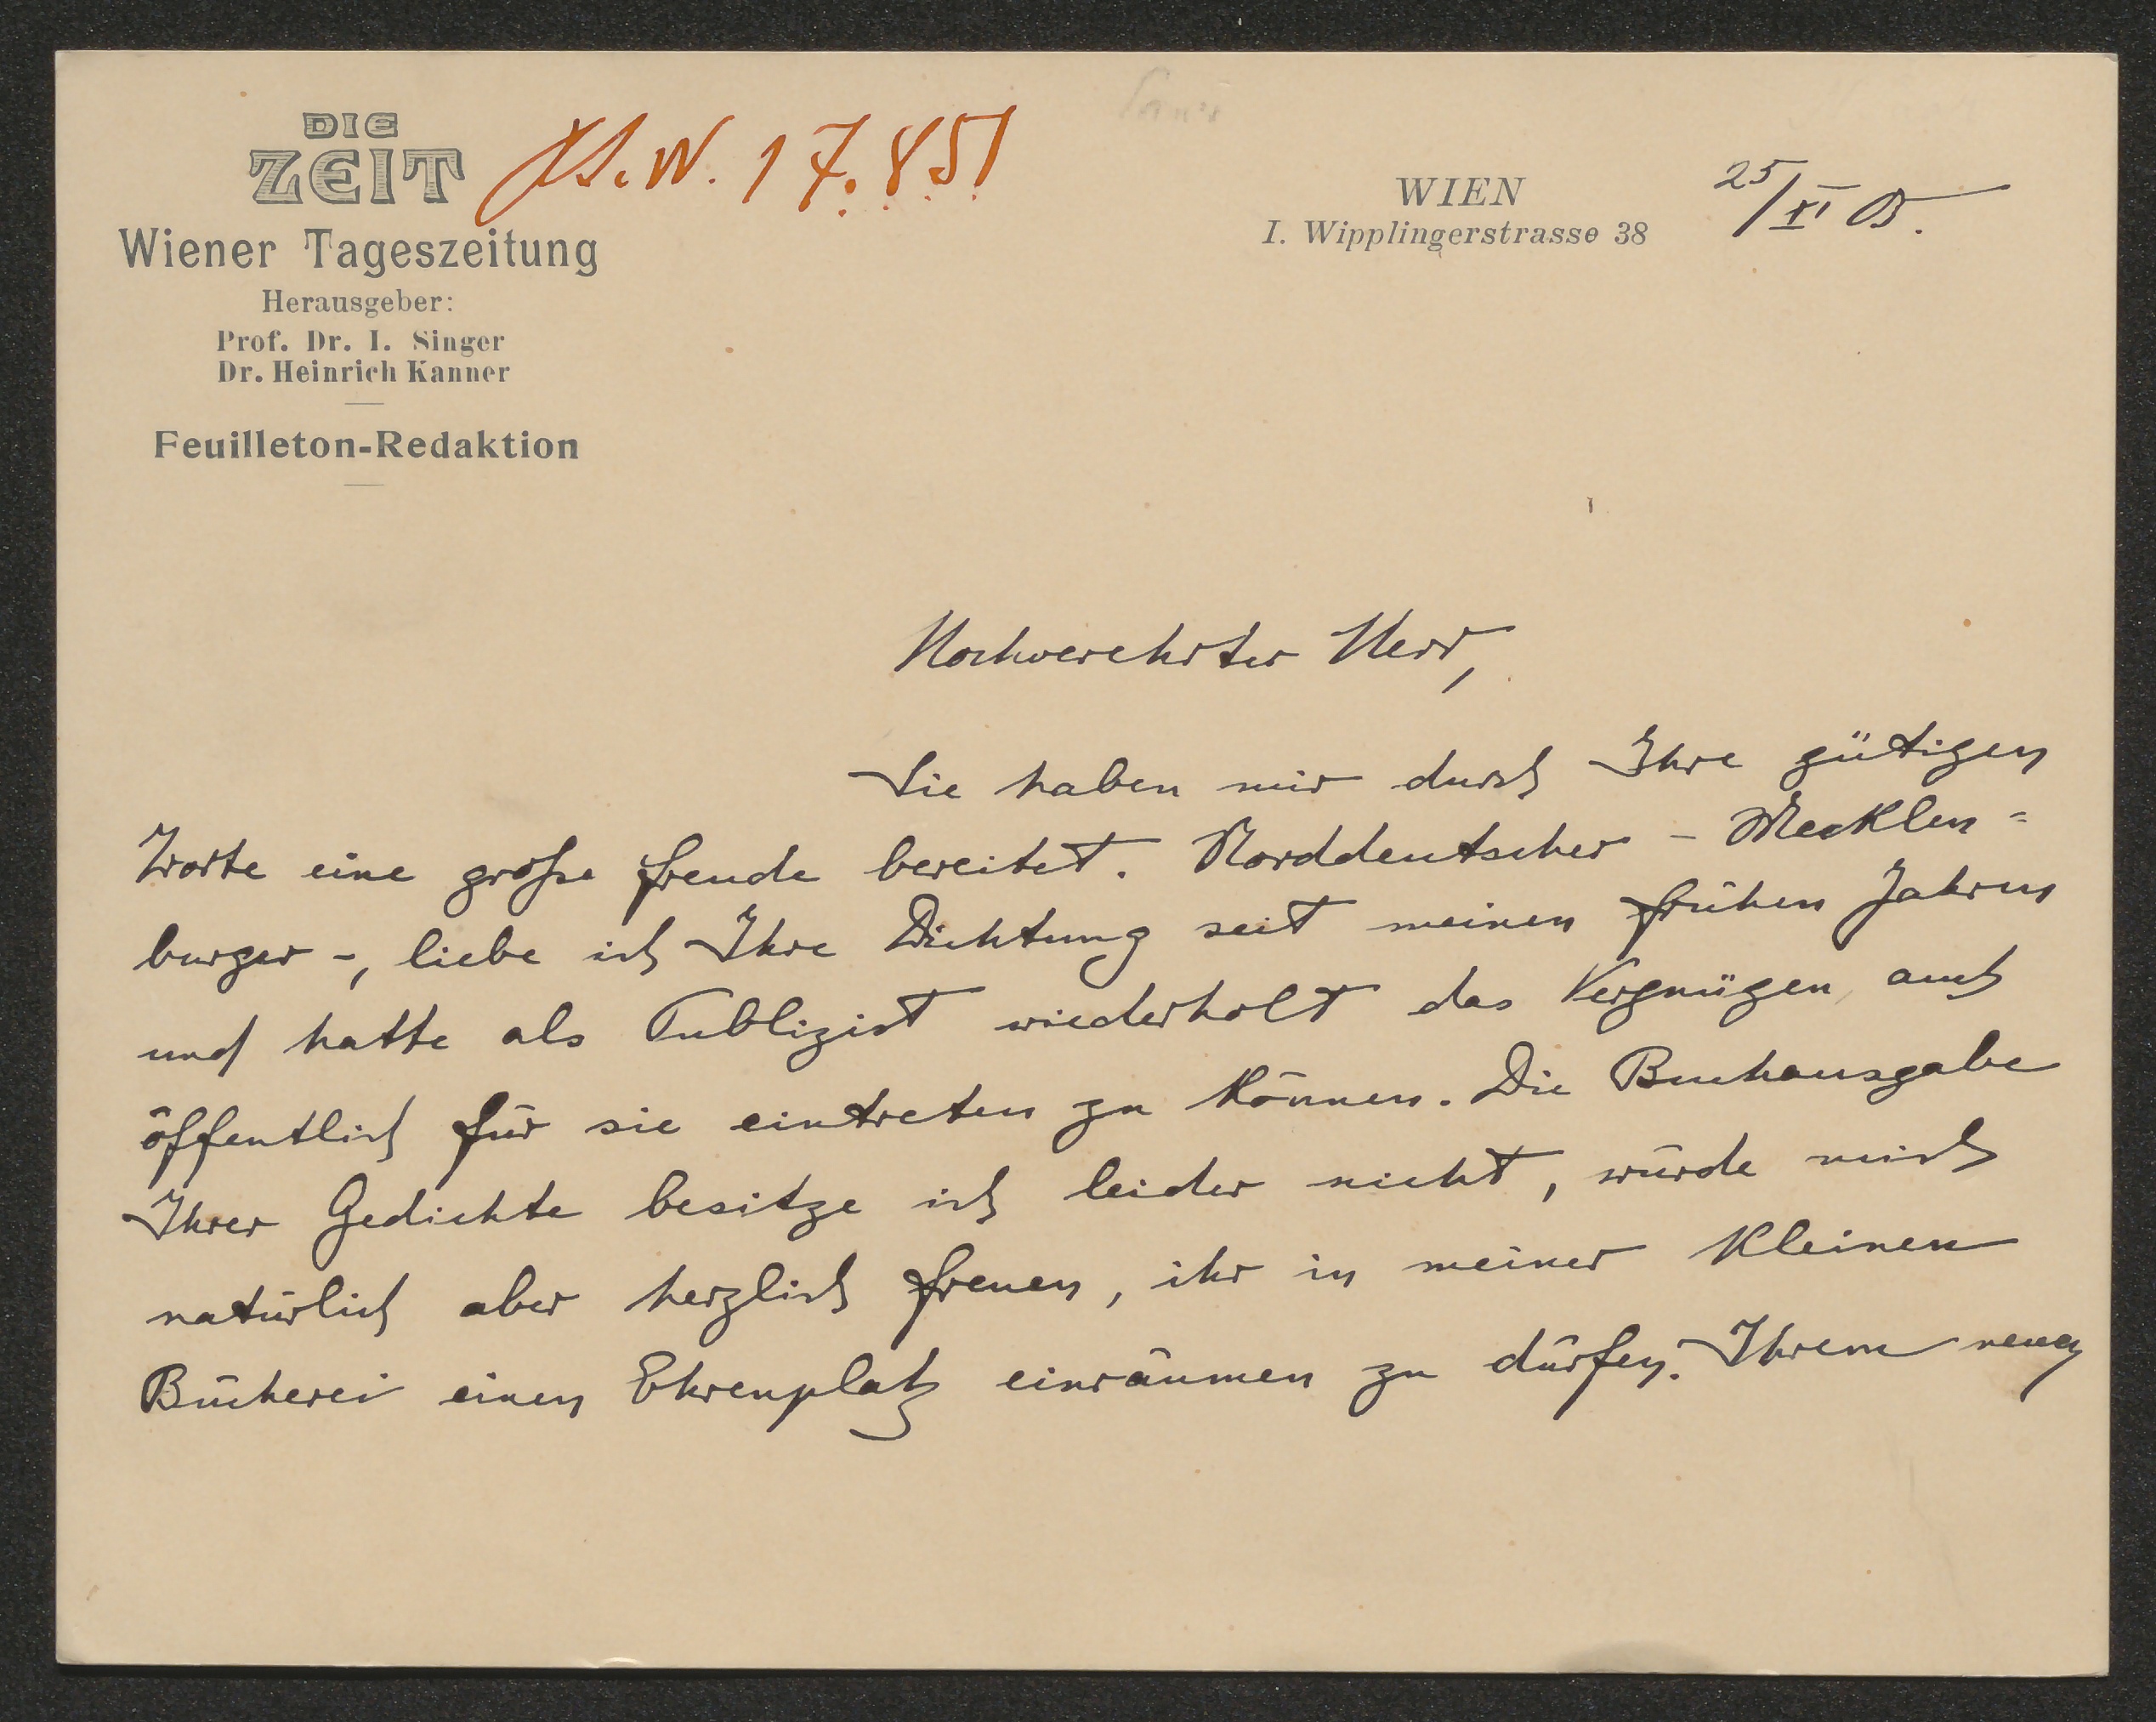 DIE
ZEIT
Wiener Tageszeitung
Herausgeber:
Prof. Dr. I. Singer
Dr. Heinrich Kanner
Feuilleton-Redaktion
17.851
WIEN
I. Wipplingerstrasse 38
25/XI 05.
Hochverehrter Herr,
Sie haben mir durch Ihre gütigen
Worte eine große Freude bereitet. Norddeutscher - Mecklen=
burger -, liebe ich Ihre Dichtung seit meinen frühen Jahren
und hatte als Publizist wiederholt das Vergnügen, auch
öffentlich für sie eintreten zu können. Die Buchausgabe
Ihrer Gedichte besitze ich leider nicht, würde mich
natürlich aber herzlich freuen, ihr in meiner kleinen
Bücherei einen Ehrenplatz einräumen zu dürfen. Ihrem neuen